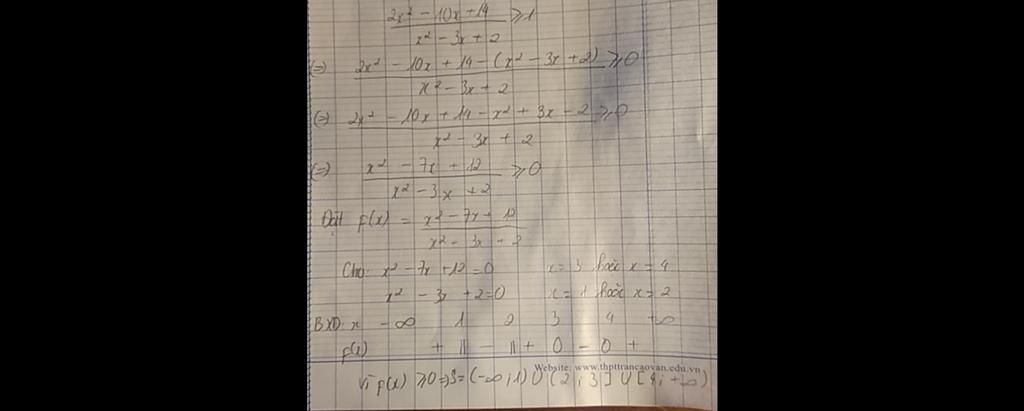 2x² - 10x + 14 / x² - 3x + 2 ⩾ 1
(=) 2x² - 10x + 14 - (x² - 3x + 2) / x² - 3x + 2 ⩾ 0
(=) 2x² - 10x + 14 - x² + 3x - 2 / x² - 3x + 2 ⩾ 0
(=) x² - 7x + 12 / x² - 3x + 2 ⩾ 0
Đặt f(x) = x² - 7x + 12 / x² - 3x + 2
Cho: x² - 7x + 12 = 0 x = 3 hoặc x = 4
x² - 3x + 2 = 0 x = 1 hoặc x = 2
BXD: x -∞ 1 2 3 4 +∞
f(x) + || - || + 0 - 0 +
Website: www.thpttrancaovan.edu.vn
Vì f(x) ⩾ 0 => S = (-∞; 1) U (2; 3] U [4; +∞)